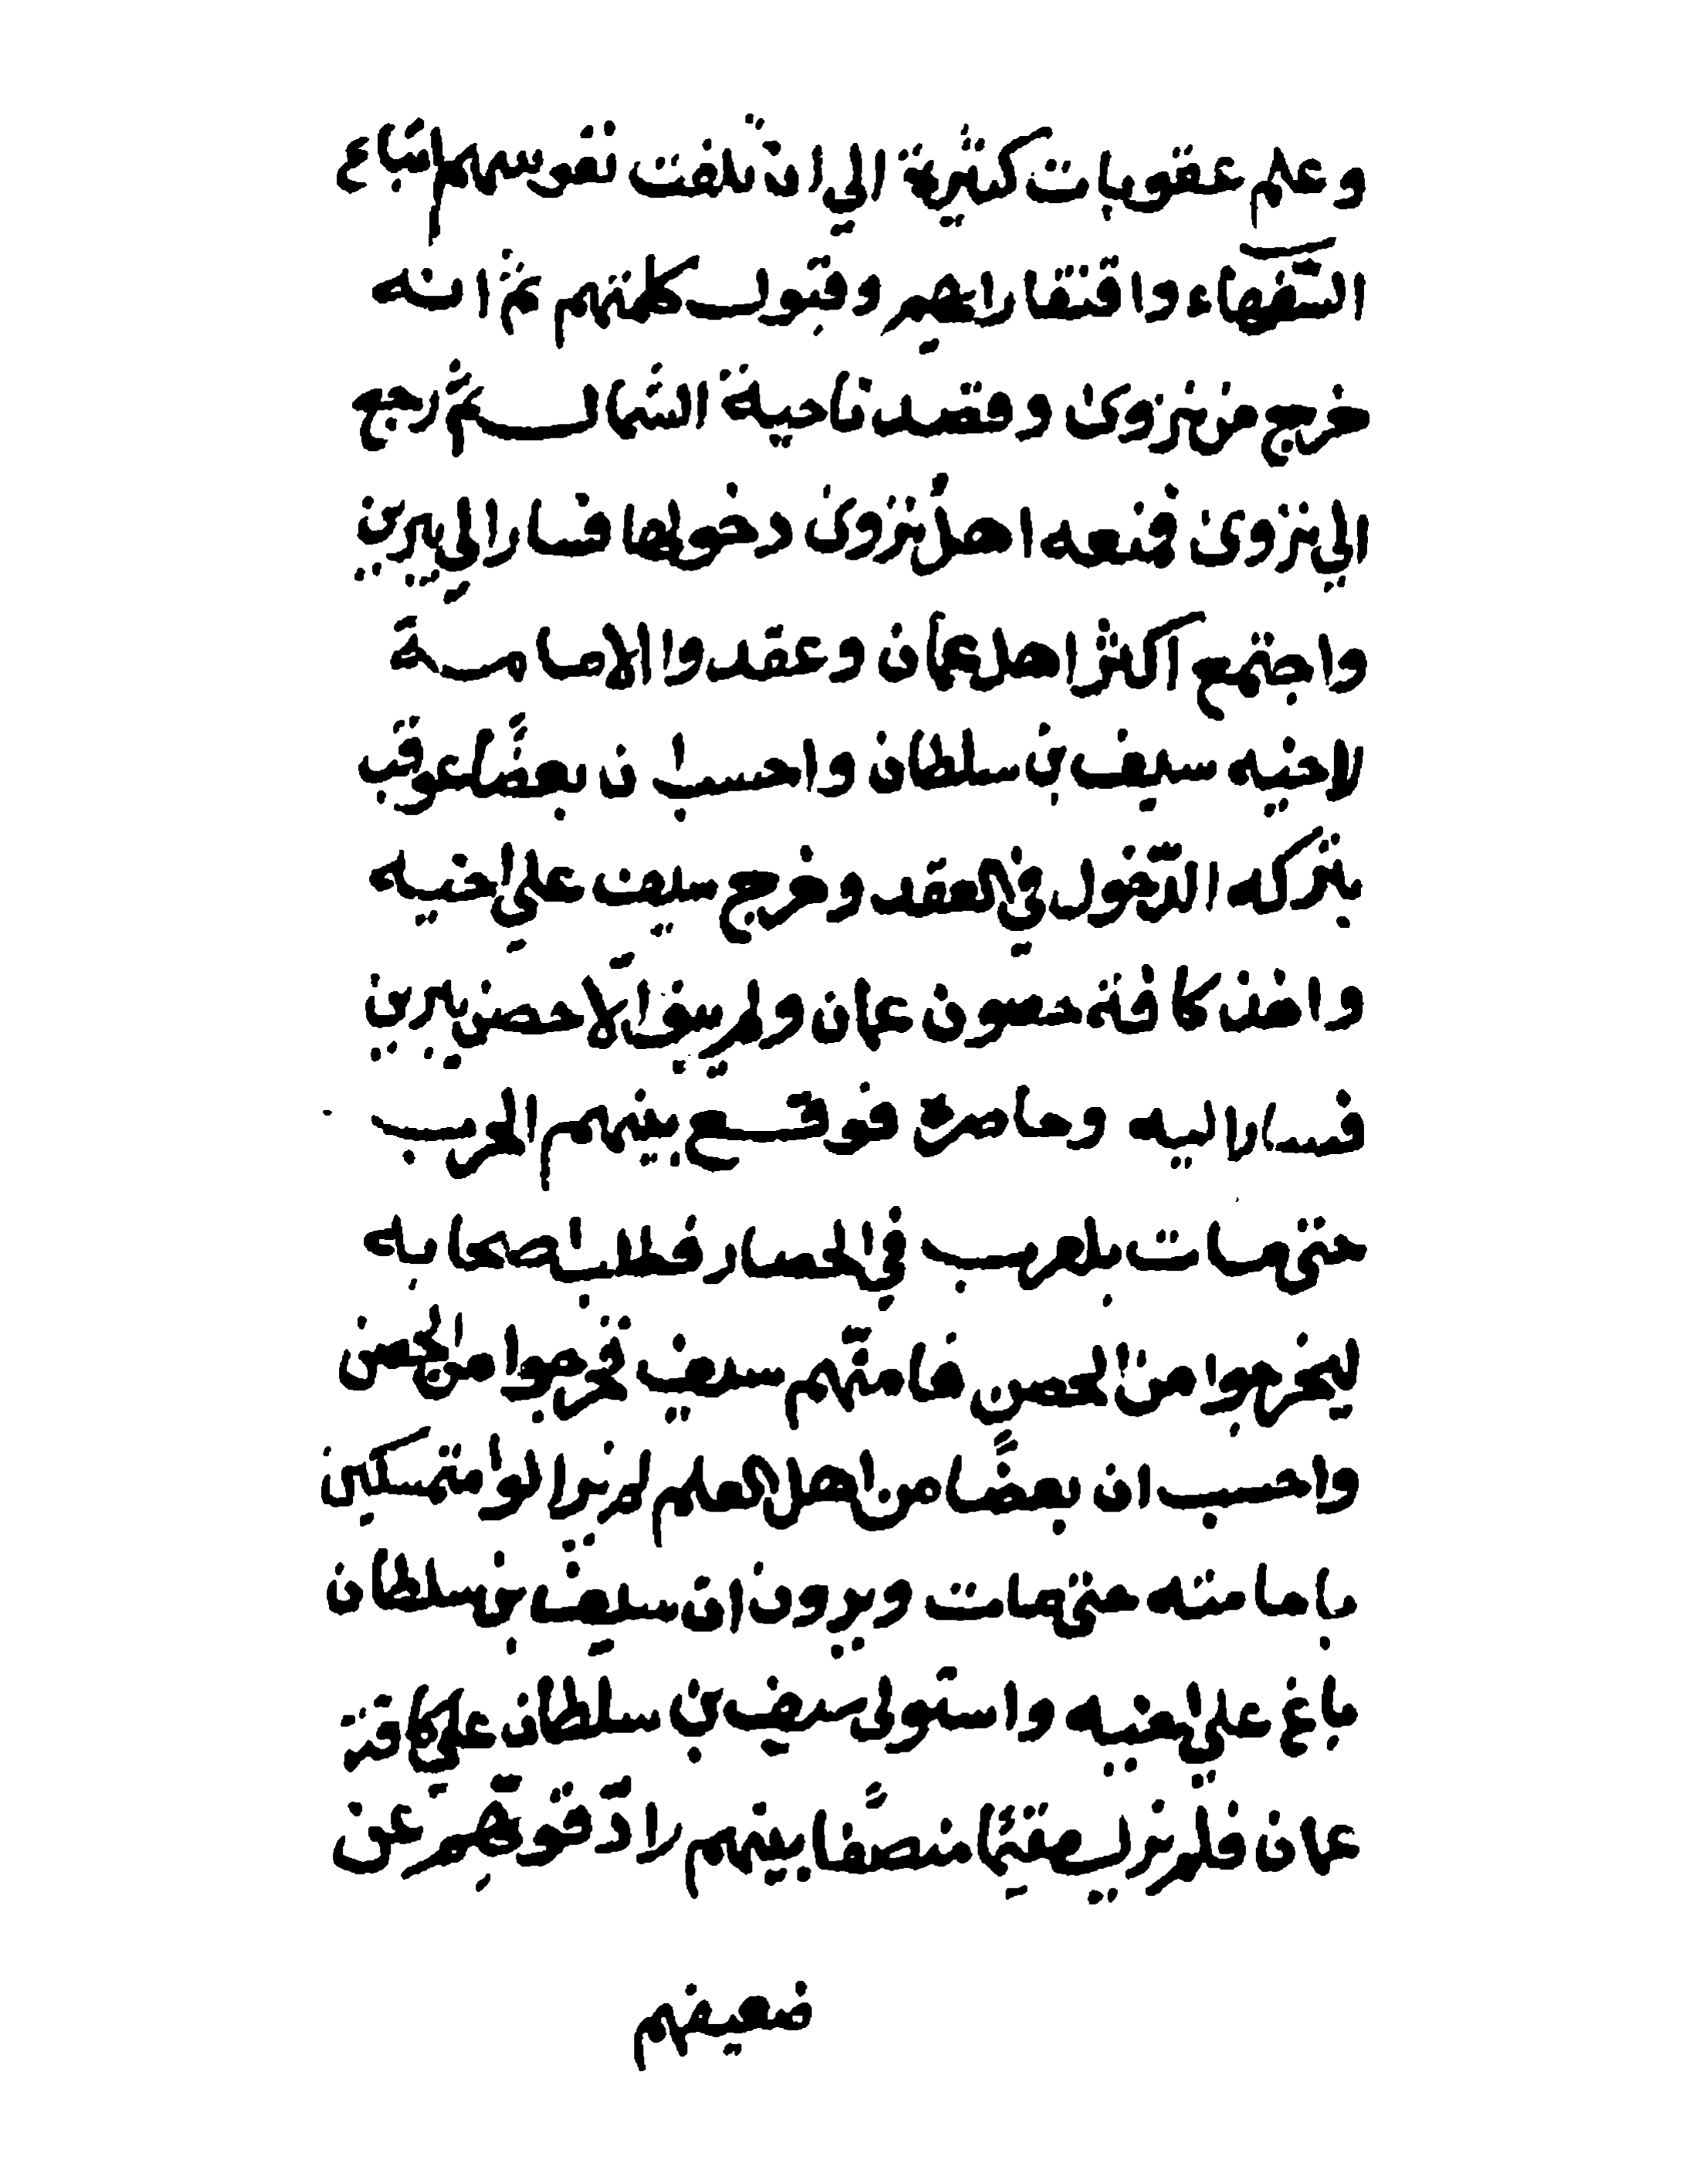 وعلم عقوبات كثيرة الي ان تلفت نفوسهم اتباع
السّفهاء وافتقارا بهم وقبول كلمتهم ثمّ انه
خرج من نزوى وقصد ناحية الشمال ثمّ رجع
الي نزوى فمنعه اهلُ نزوى دخولها فسار الي يبرين
واجتمع اكثر اهل عمان وعقدوا الامامة
لاخيه سيف بن سلطان واحسب ان بعضًا عوقب
بتركه الدّخول في العقد وخرج سيف علي اخيه
واخذ كافة حصون عمان ولم يبق الّا حصن يبرين
فسار اليه وحاصره فوقع بينهم الحرب
حتى مات بلعرب في الحصار فطلب اصحابه
ليخرجوا من الحصن فامنّهم سيف فخرجوا من الحصن
واحسب ان بعضًا من اهل العلم لم يزالوا متمسكين
بامامته حتى مات ويرون ان سيف بن سلطان
باغ علي اخيه واستولى سيف بن سلطان علي كافة
عمان فلم يزل مقيمًا منصفًا بينهم رادّ قويّهم عن
ضعيفهم